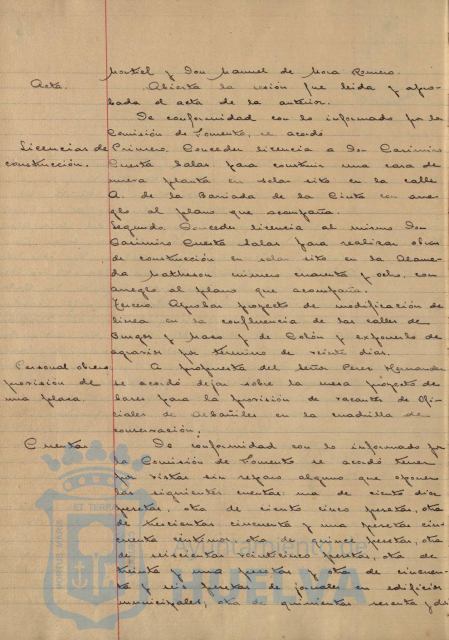 Montiel y Don Manuel de Mora Romero.
Acta. Abierta la sesión fue leida y apro-
bada el acta de la anterior.
De conformidad con lo informado por la
Comisión de Fomento, se acordó
Licencias de construcción. Primero. Conceder licencia a Don Casimiro
Cuesta Salas para construir una casa de
nueva planta en solar sito en la calle
A. de la Barriada de la Cinta con arre-
glo al plano que acompaña.
Segundo. Conceder licencia al mismo Don
Casimiro Cuesta Salas para realizar obras
de construcción en solar sito en la Alame-
da Matheson número cuarenta y ocho, con
arreglo al plano que acompaña.
Tercero. Aprobar proyecto de modificación de
linea en la confluencia de las calles de
Burgos y Mazo y de Colón y exponerlo de
agravios por término de veinte dias.
Personal obrero provisión de una plaza. A propuesta del Señor Perez Hernandez
se acordó dejar sobre la mesa proyecto de
bases para la provisión de vacantes de Ofi-
ciales de Albañiles en la cuadrilla de
conservación.
Cuentas De conformidad con lo informado por
la Comisión de Fomento se acordó tener
por vistas sin reparo alguno que oponer
las siguientes cuentas: una de ciento diez
pesetas, otra de ciento cinco pesetas, otra
de trescientas cincuenta y una pesetas cin-
cuenta céntimos, otra de quince pesetas, otra
de seiscientas veinticinco pesetas, otra de
treinta y una pesetas y otra de cincuen-
ta y seis pesetas de jornales en edificios
municipales; otra de quinientas sesenta y dos
Ayuntamiento de
HUELVA